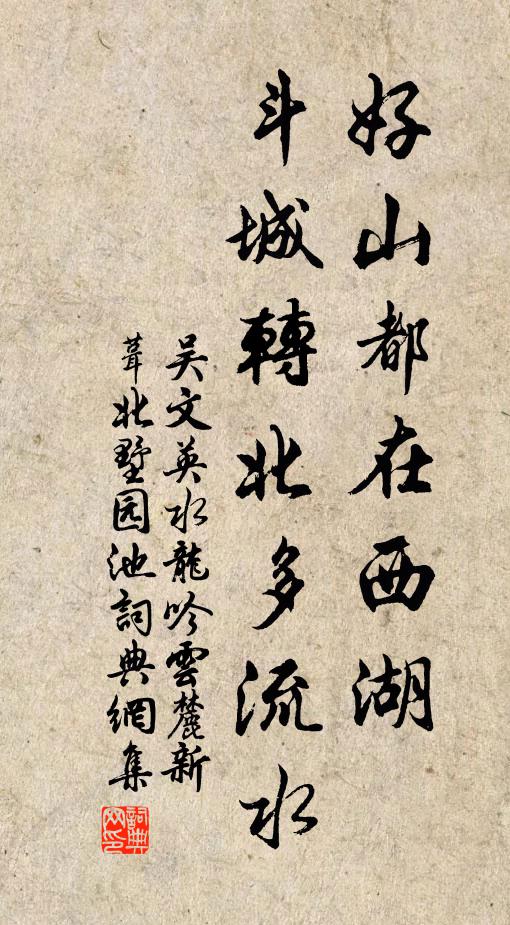 好山都在西湖
斗城轉北多流水
吴文英水龍吟雲麓新
葺北墅园池詞典網集
詞典网印